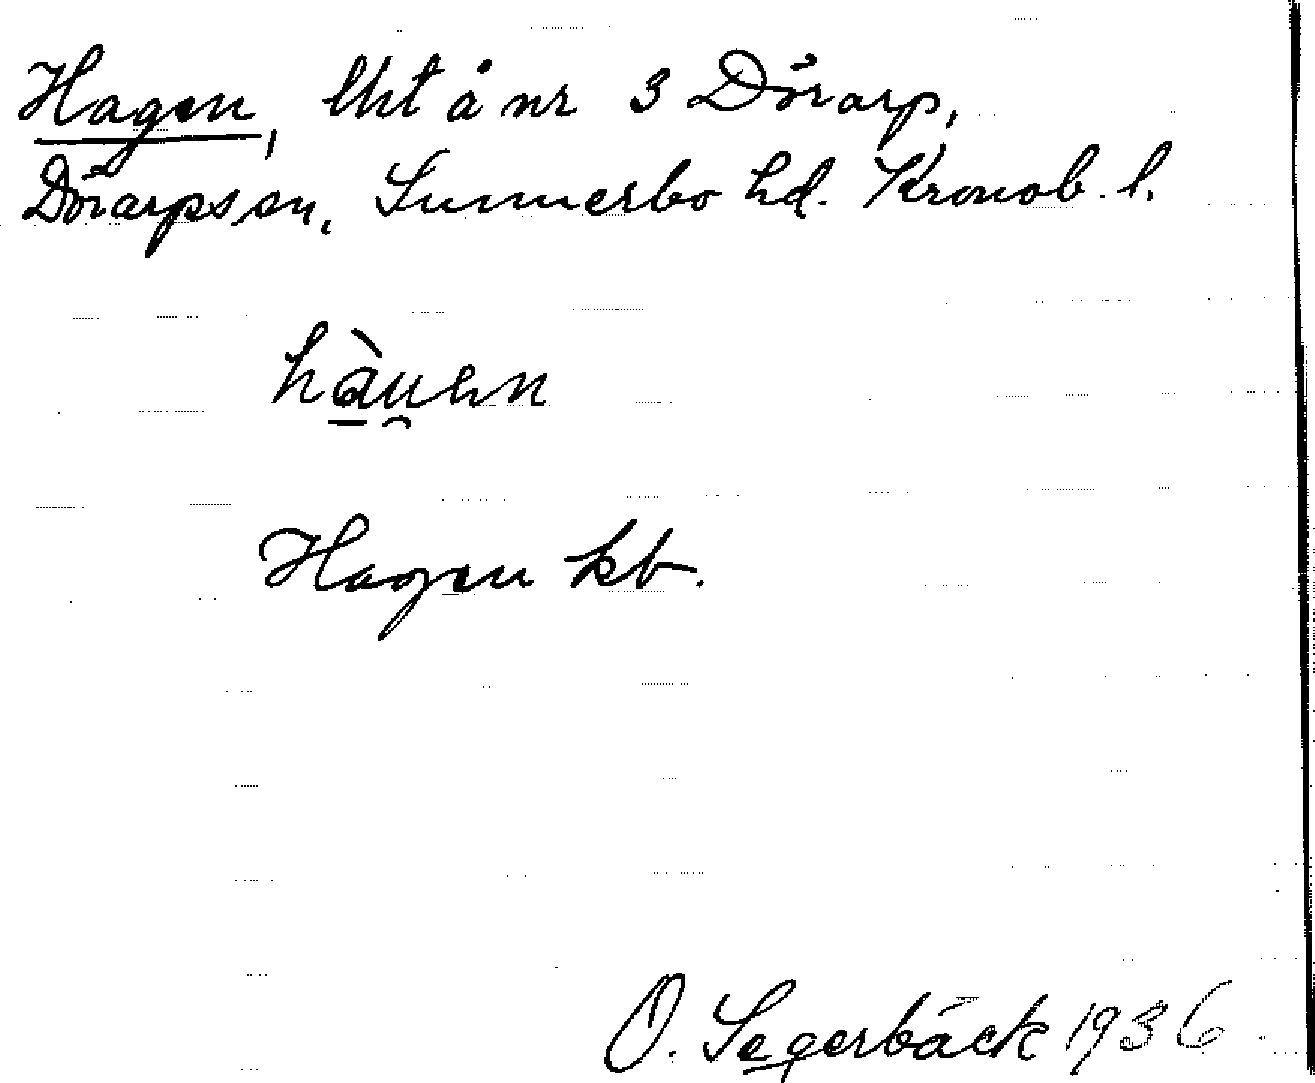 Hagen, lht å nr 3 Dörarp,
Dörarps sn, Sunnerbo hd. Kronob. l.
hàu̯en
Hagen kb.
O. Segerbäck 1936